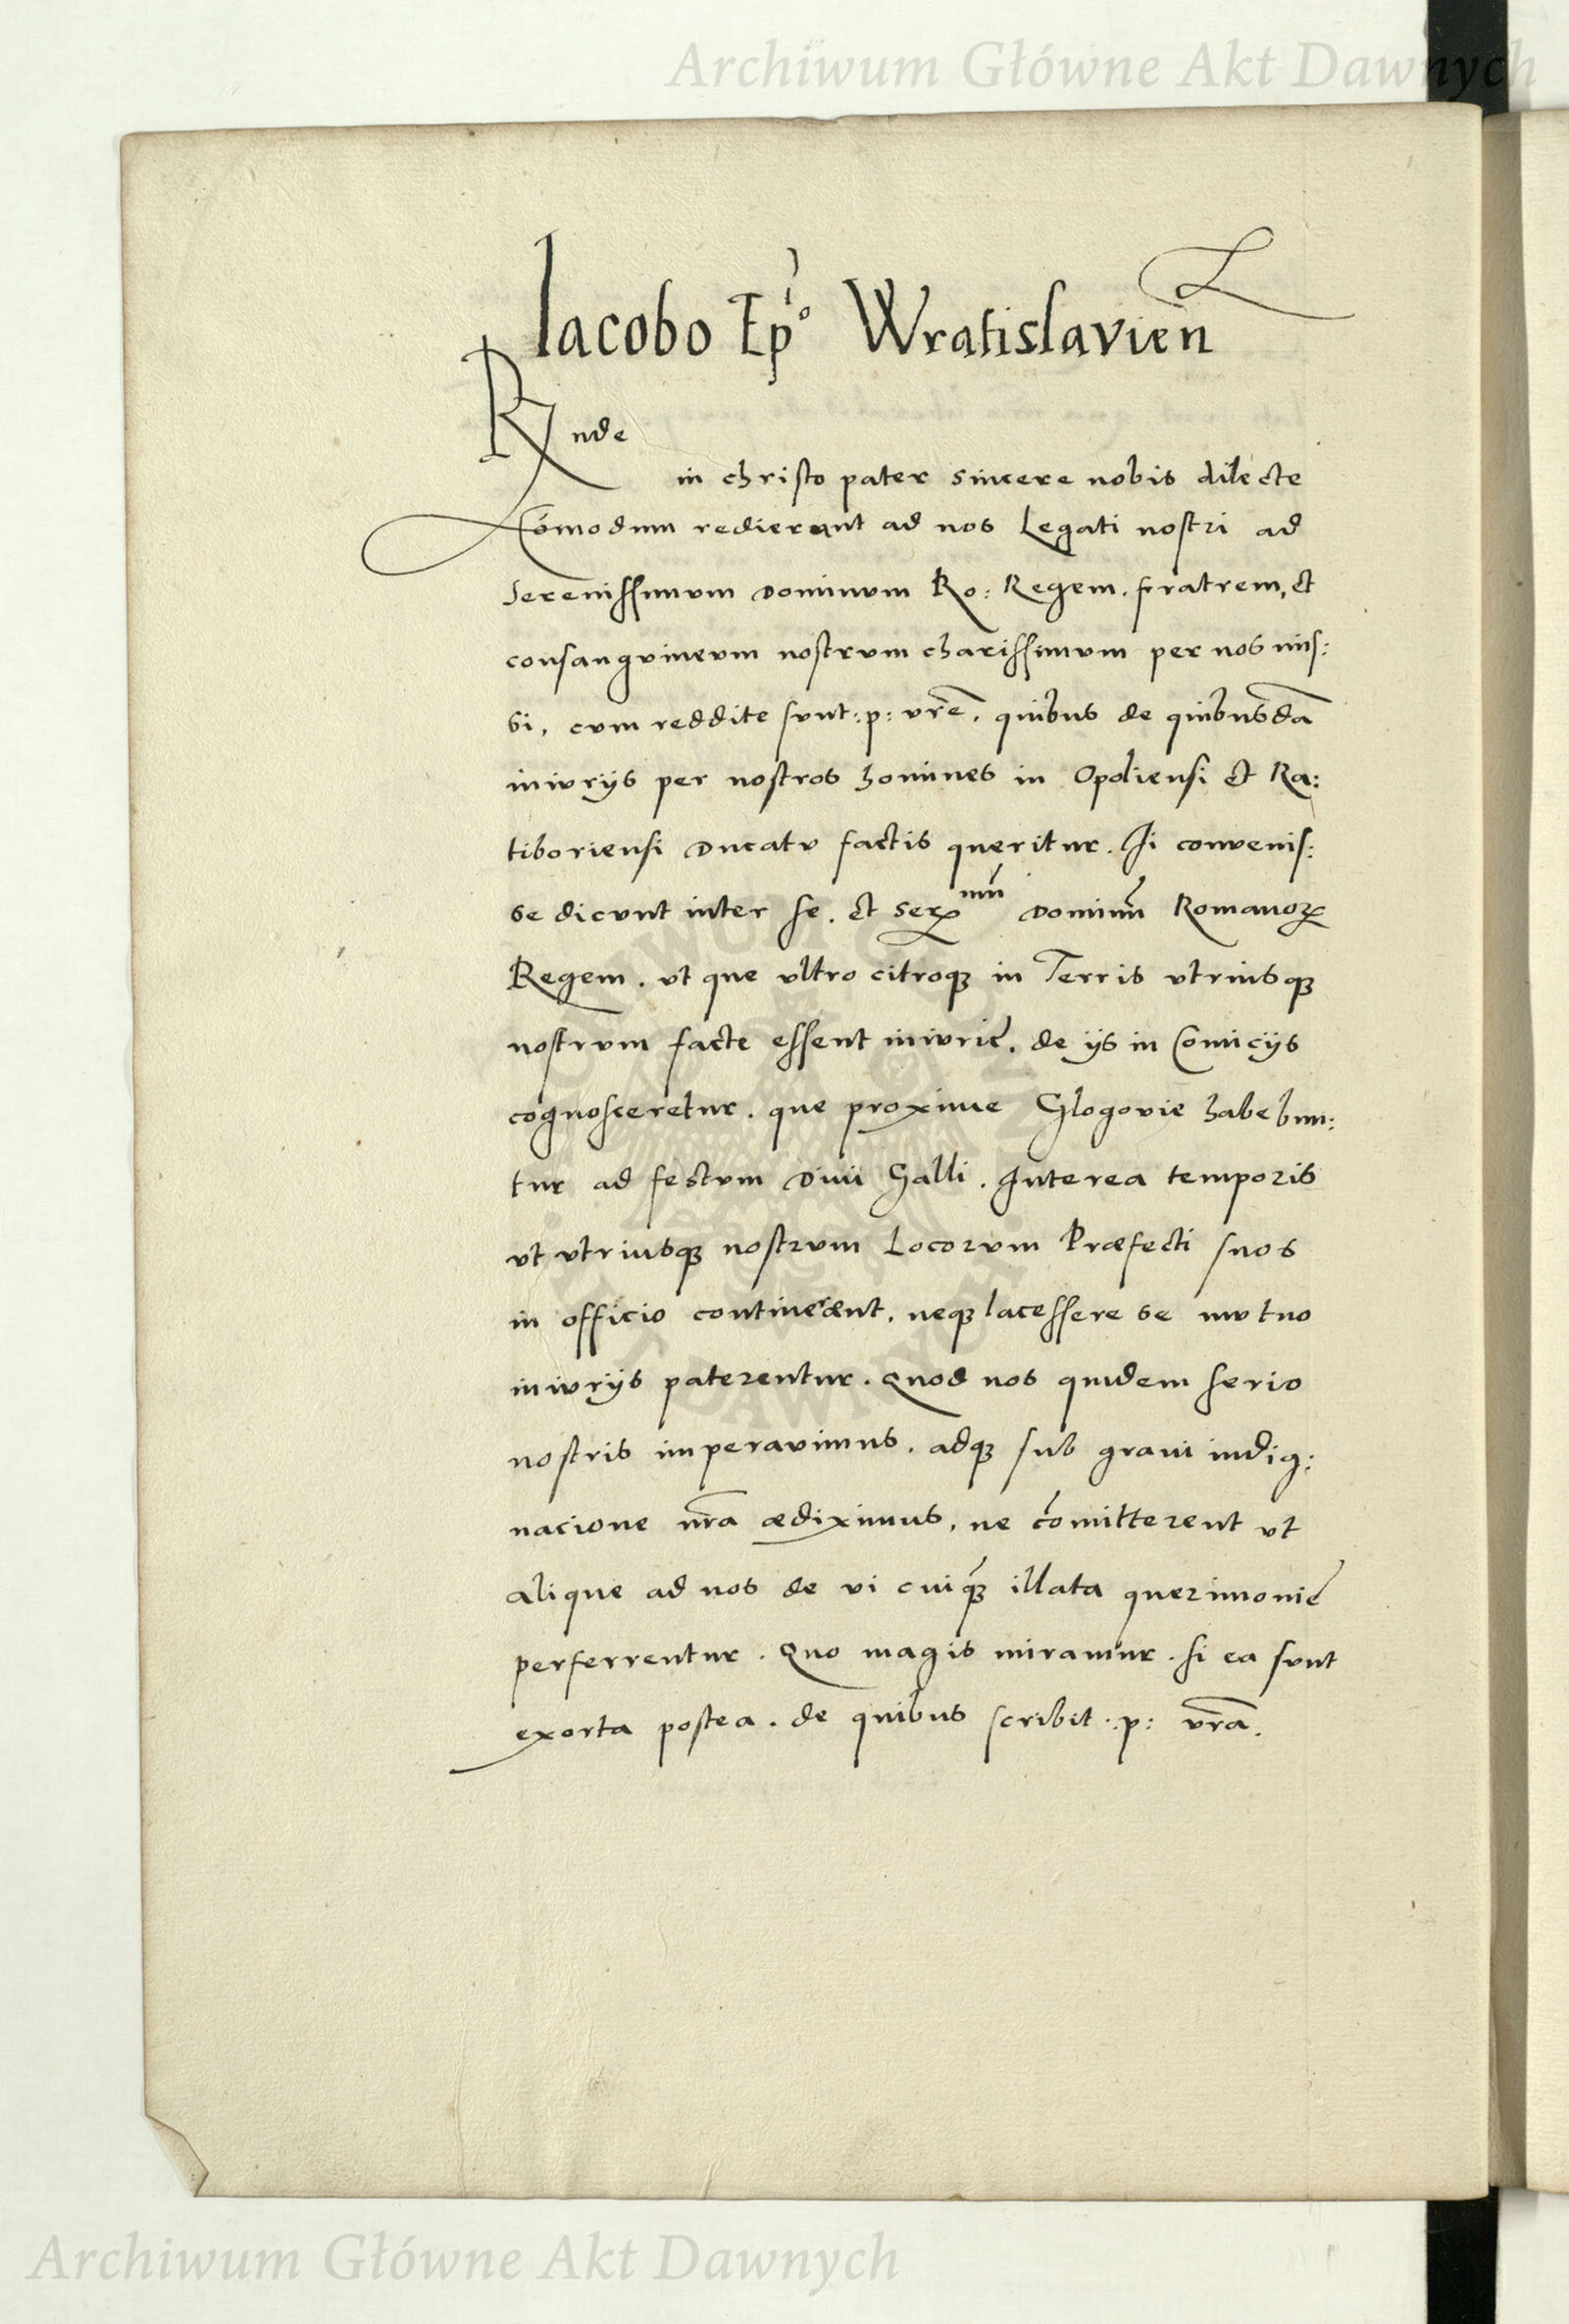 Archiwum Główne Akt Dawnych
Iacobo Ep̃o Wratislavien̄
Rnde
in christo pater sincere nobis dilecte
Cōmodum redierant ad nos Legati nostri ad
Serenissimum Dominum Ro: Regem. fratrem, et
consangvinevm nostrvm charissimvm per nos mis:
si, cvm reddite svnt :p: vr̃e. quibus de quibusdā
inivrijs per nostros homines in Opoliensi et Ra:
tiboriensi Ducatv factis queritur. Ii convenis:
se dicvnt inter se. et Ser mū Dominū Romanoꝝ
Regem. vt que vltro citroqꝫ in Terris vtriusqꝫ
nostrvm facte essent inivrie. de ijs in Comicijs
cognosceretur. que proxime Glogovie habebun:
tur ad festvm Divi Galli. Interea temporis
vt vtriusqꝫ nostrvm Locorvm Præfecti suos
in officio continerent. neqꝫ lacessere se mvtuo
inivrijs paterentur. Quod nos quidem serio
nostris imperavimus. adqꝫ sub gravi indig:
nacione nr̃a ædiximus. ne cōmitterent vt
alique ad nos de vi cuiqꝫ illata querimonie
perferrentur. Quo magis miramur. si ea svnt
exorta postea. de quibus scribit :p: vr̃a.
Archiwum Główne Akt Dawnych